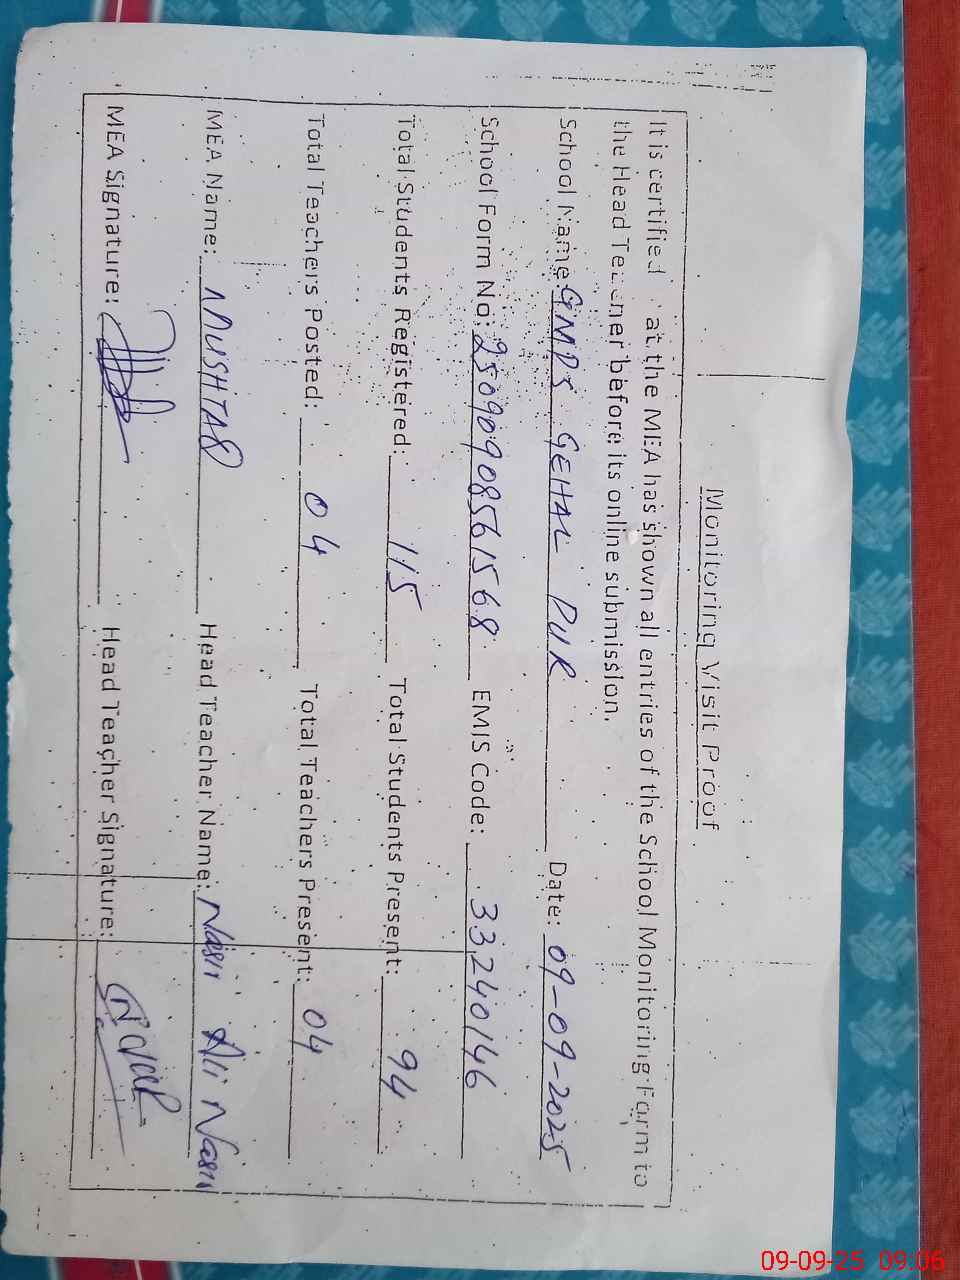 Monitoring Visit Proof
It is certified that the MEA has shown all entries of the School Monitoring Form to
the Head Teacher before its online submission.
School Name: GMPS GEHAL PUR Date: 09-09-2025
School Form No: 25090908561568 EMIS Code: 33240146
Total Students Registered: 115 Total Students Present: 94
Total Teachers Posted: 04 Total Teachers Present: 04
MEA Name: MUSHTAQ Head Teacher Name: Nasir Ali Nasir
MEA Signature: Head Teacher Signature:
09-09-25 09:06